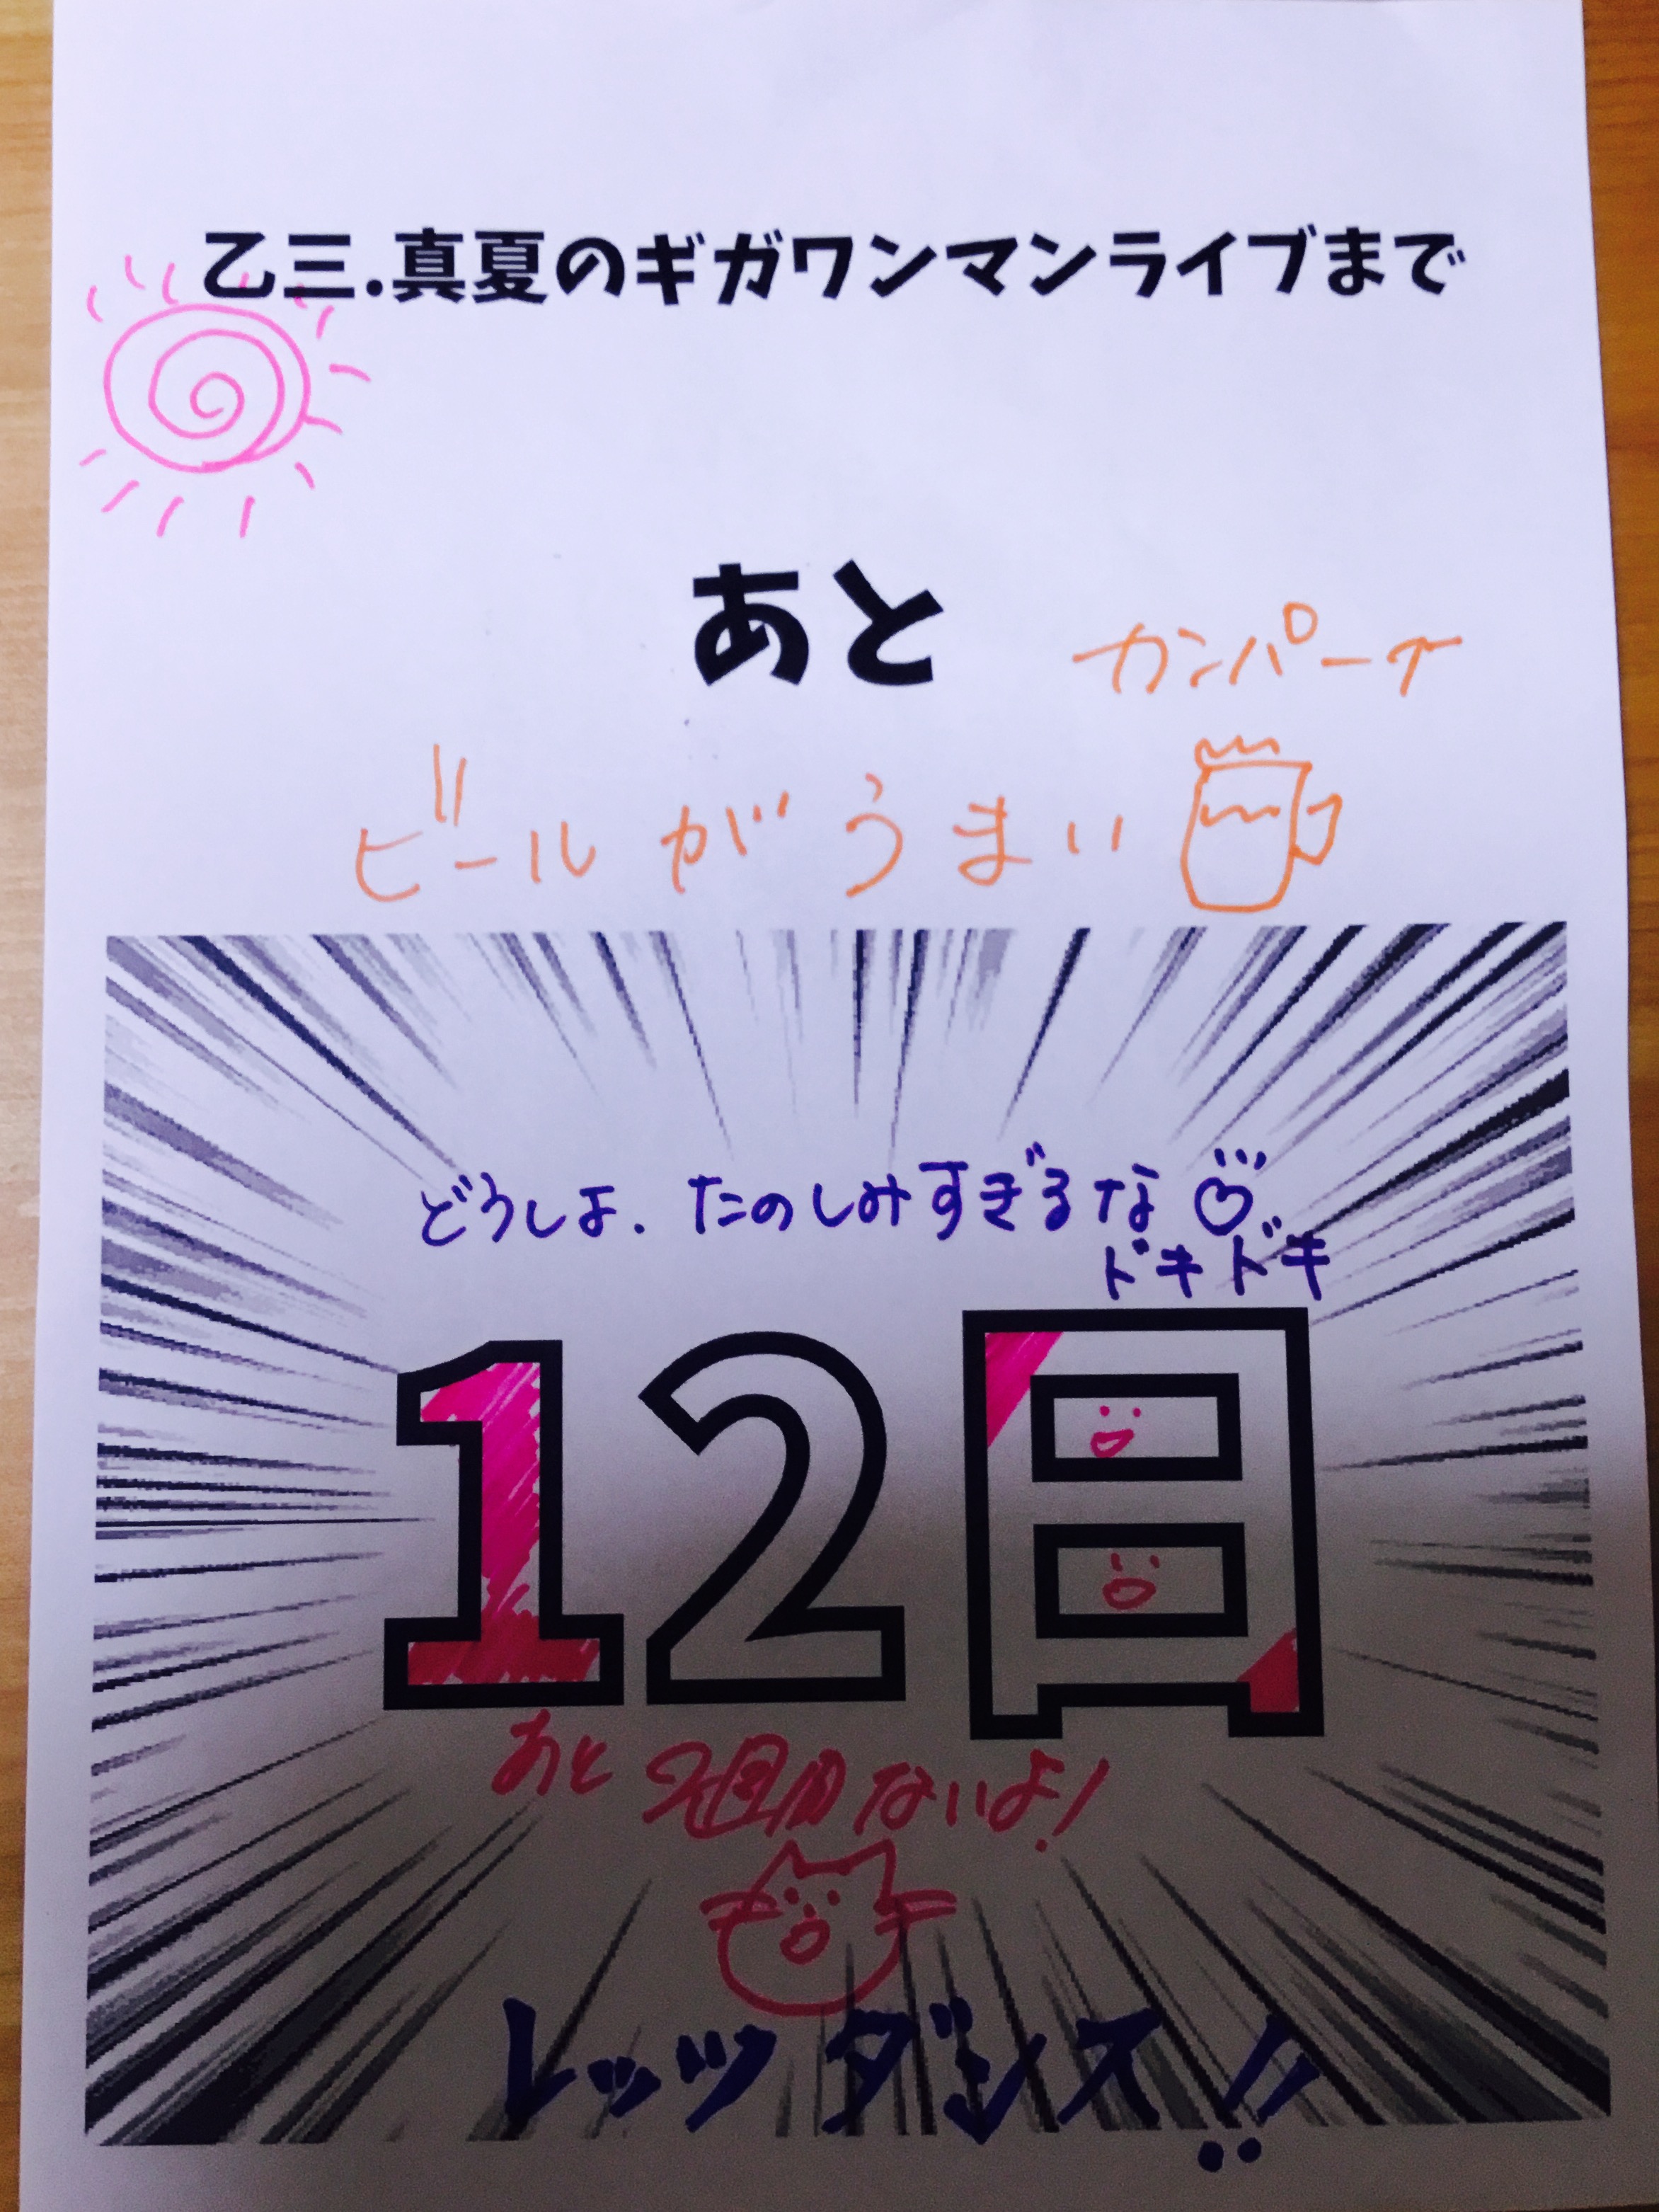 乙三.真夏のギガワンマンライブまで
あと
カンパーイ
ビールがうまい
どうしよ.たのしみすぎるな
ドキドキ
12日
あと2週間ないよ!
レッツダンス!!